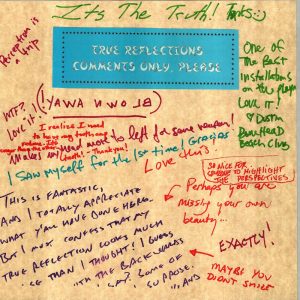 It's The Truth! Thanks :)
Perception is a
TRUE REFLECTIONS
COMMENTS ONLY, PLEASE
One of
The Best
Installations
on the playa
Love it!
♡ Dustin
BunHead
Beach Club
WTF?
Love it!
(BLOWN AWAY!)
I realize I need
to have my teeth
Thank you!
Makes my head move to left for some reason!
I saw myself for the 1st time! Gorgeous
Love this
SO NICE FOR
TO HIGHLIGHT
THE PERSPECTIVES
Perhaps you are
missing your own
beauty...
THIS IS FANTASTIC,
AND I TOTALLY APPRECIATE
WHAT Y'ALL HAVE DONE HERE.
BUT I MUST CONFESS THAT MY
TRUE REFLECTION LOOKS MUCH
THAN I THOUGHT! I GUESS
THE BACKWARDS
SOME OF
EXACTLY!
MAYBE YOU
DIDNT SMILE